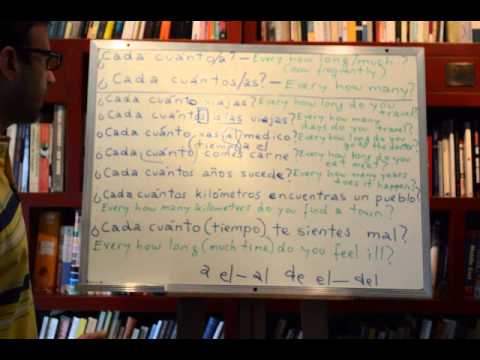 ¿Cada cuánto/a? – Every how long/much?
(how frequently)
¿Cada cuántos/as? – Every how many?
¿Cada cuánto viajas? Every how long do you travel?
¿Cada cuántos días viajas? Every how many days do you travel?
¿Cada cuánto vas al médico? Every how long do you go to the doctor?
(tiempo) a el
¿Cada cuánto comes carne? Every how long do you eat meat?
¿Cada cuántos años sucede? Every how many years does it happen?
¿Cada cuántos kilómetros encuentras un pueblo?
Every how many kilometres do you find a town?
¿Cada cuánto (tiempo) te sientes mal?
Every how long (much time) do you feel ill?
a el – al de el – del